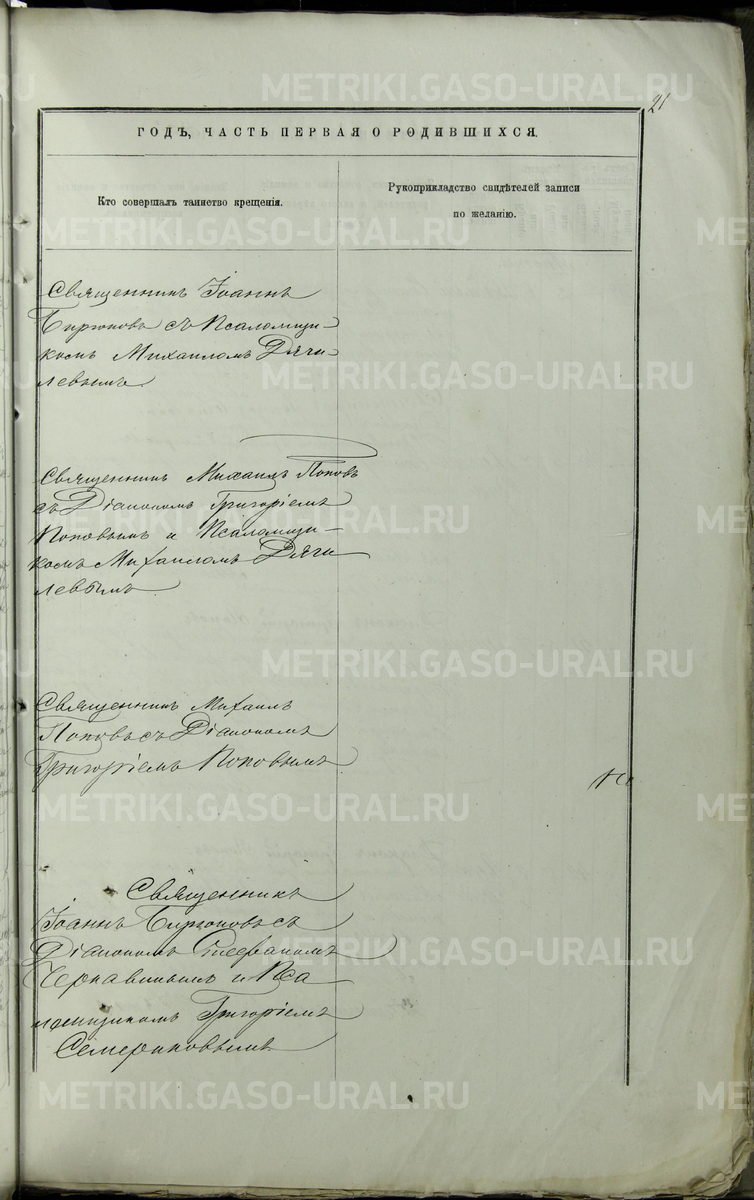 21
ГОДЪ, ЧАСТЬ ПЕРВАЯ О РОДИВШИХСЯ.
Кто совершалъ таинство крещенія.
Рукоприкладство свидѣтелей записи
по желанію.
Священникъ Іоаннъ
Бирюковъ съ Псаломщи-
комъ Михаиломъ Дяги-
левымъ
Священникъ Михаилъ Поповъ
съ Діакономъ Григоріемъ
Поповымъ и Псаломщи-
комъ Михаиломъ Дяги
левымъ
Священникъ Михаилъ
Поповъ съ Діакономъ
Григоріемъ Поповымъ
Священникъ
Іоаннъ Бирюковъ съ
Діакономъ Стефаномъ
Чернавинымъ и Пса
ломщикомъ Григоріемъ
Семериковымъ
METRIKI.GASO-URAL.RU